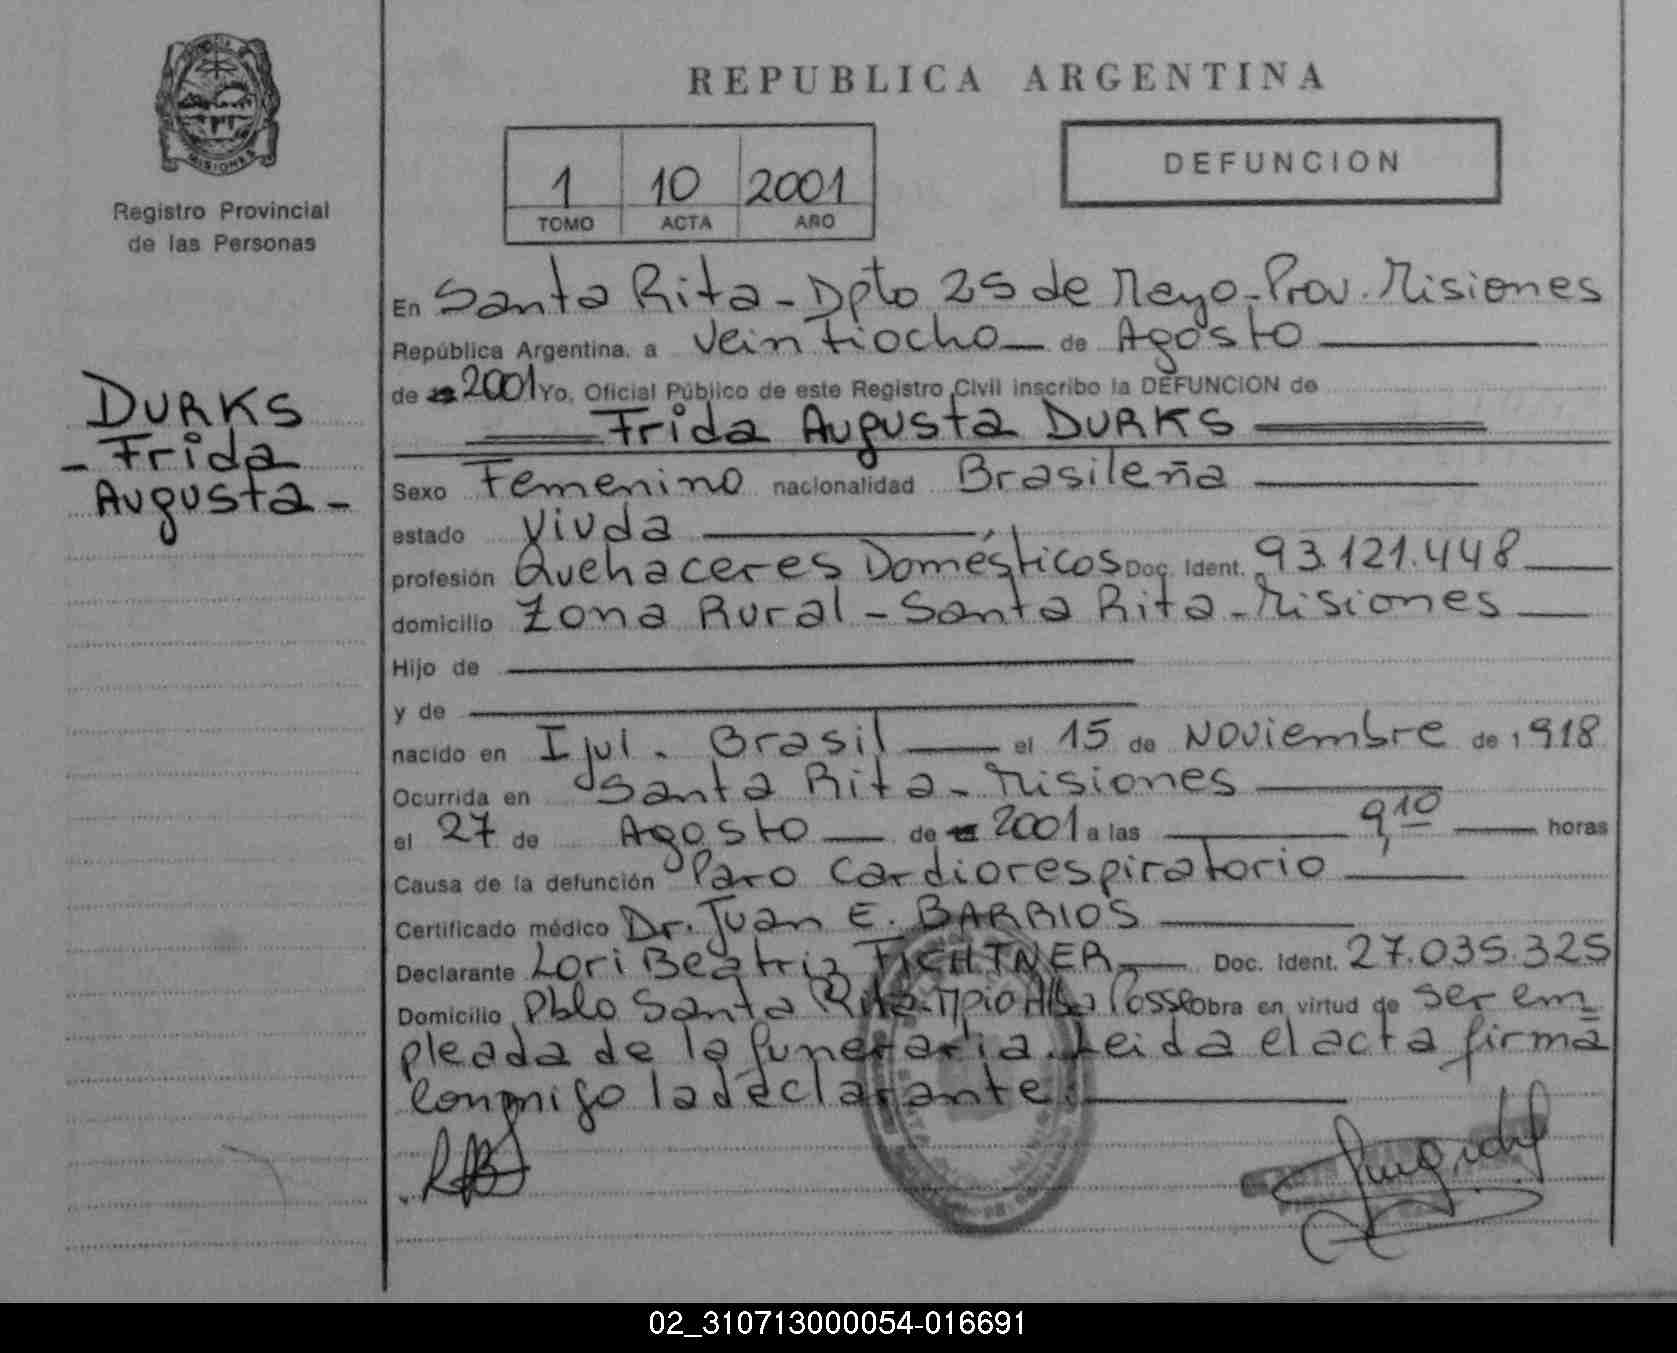 REPUBLICA ARGENTINA
DEFUNCION
1 10 2001
TOMO ACTA AÑO
MISIONES
Registro Provincial
de las Personas
DURKS
- Frida
Augusta -
En Santa Rita - Dpto 25 de Mayo - Prov. Misiones
República Argentina, a veintiocho de Agosto
de 2001 Yo, Oficial Público de este Registro Civil inscribo la DEFUNCION de
Frida Augusta DURKS
Sexo Femenino nacionalidad Brasileña
estado Viuda
profesión Quehaceres Domésticos Doc. Ident. 93.121.448
domicilio Zona Rural - Santa Rita - Misiones
Hijo de
y de
nacido en Ijui - Brasil el 15 de Noviembre de 1918
Ocurrida en Santa Rita - Misiones
el 27 de Agosto de 2001 a las 9,10 horas
Causa de la defunción Paro Cardiorespiratorio
Certificado médico Dr. Juan E. BARRIOS
Declarante Lori Beatriz FICHTNER Doc. Ident. 27.035.325
Domicilio Pblo Santa Rita - Mpio Alba Posse Obra en virtud de ser em
pleada de la funeraria. Leida el acta firma
conmigo la declarante.
02_310713000054-016691